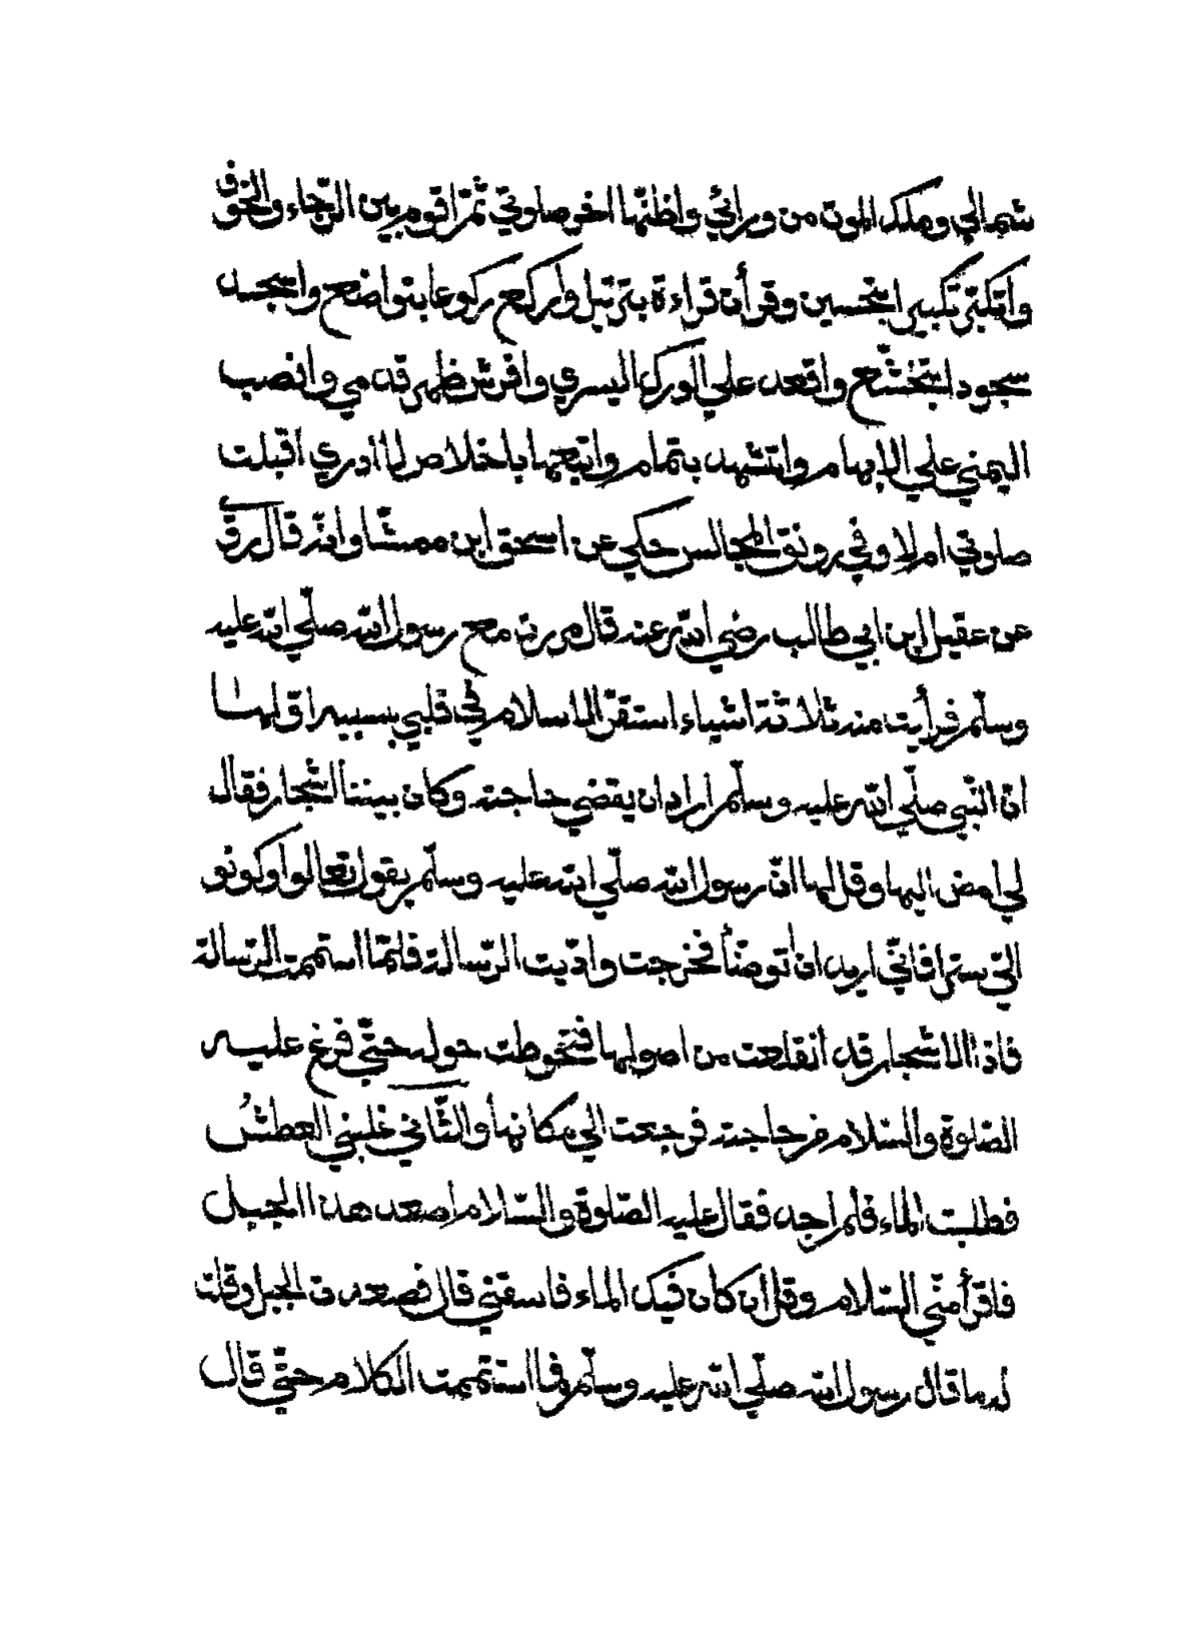 شمالي وملك الموت من ورائي واظنّها اخر صلوتي ثمّ اقوم بين الرّجاء والخوف
واكبّر تكبيرا بتحسين وقرأن قراءة بترتيل واركع ركوعا بتواضع واسجد
سجودا بتخشّع واقعد علي الورك اليسري وافرش ظهر قدمي وانصب
اليمني علي الابهام واتشهد بتمام واتبعها باخلاص لما ادري اقبلت
صلوتي ام لا وفي رونق المجالس حكي عن اسحق ابن ممشّا وانّه قال رقّ
عن عقيل ابن ابي طالب رضي الله عنه قال مررت مع رسول الله صلّي الله عليه
وسلّم فرأيت منه ثلاثة اشياء استقرّ الاسلام في قلبي بسببه اوّلها
انّ النّبي صلّي الله عليه وسلّم اراد ان يقضي حاجته وكان بيننا اشجار فقال
لي امض اليها وقل لها انّ رسول الله صلّي الله عليه وسلّم يقول تعالوا وكونو
الّتي سترا فانّي اريد ان اتوضّأ فخرجت وادّيت الرّسالة فلمّا استتممت الرّسالة
فاذا الاشجار قد انقلعت من اصولها فتحوطت حوله حتّي فرغ عليه
الصّلوة والسّلام من حاجته فرجعت الي مكانها والثّاني غلبني العطش
فطلبت الماء فلم اجد فقال عليه الصّلوة والسّلام اصعد هذا الجبل
فاقرأ منّي السّلام وقل ان كان فيك الماء فاسقني قال فصعدت الجبل وقلت
له ما قال رسول الله صلّي الله عليه وسلّم فما استتممت الكلام حتّي قال